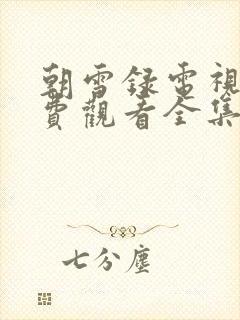 朝雪録電視
費觀看全集
七分塵